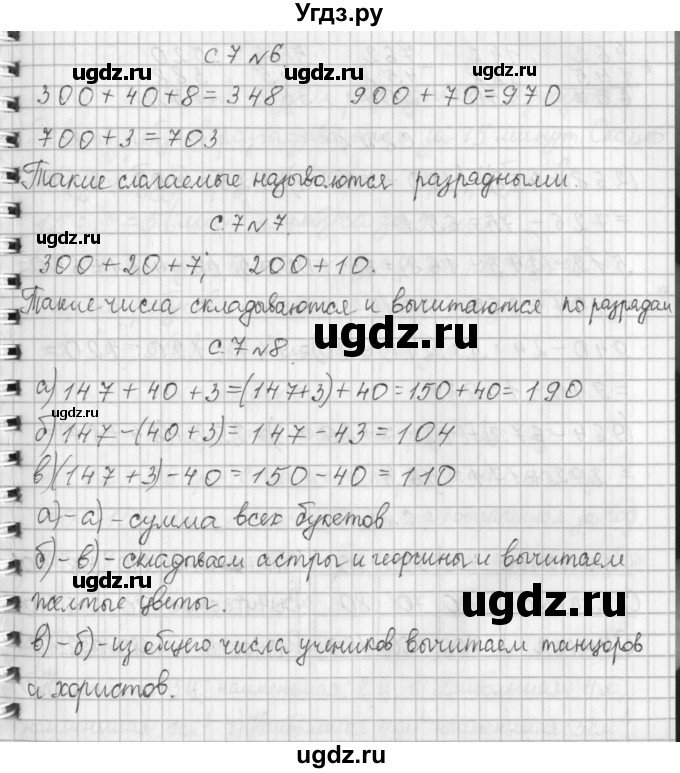 Угдз.ру
с.7 №6
ugdz.ru ugdz.ru
300+40+8=348 900+70=970
700+3=703
Такие слагаемые называются разрядными.
с.7 №7.
ugdz.ru
300+20+7; 200+10.
Такие числа складываются и вычитаются по разрядам
ugdz.ru
с.7 №8.
а) 147+40+3=(147+3)+40=150+40=190
ugdz.ru
б) 147-(40+3)=147-43=104
в) (147+3)-40=150-40=110
а)-а)-сумма всех букетов
б)-в)-складываем астры и георгины и вычитаем
ugdz.ru
желтые цветы. ugdz.ru
в)-б)-из общего числа учеников вычитаем танцоров
и хористов.
ugdz.ru